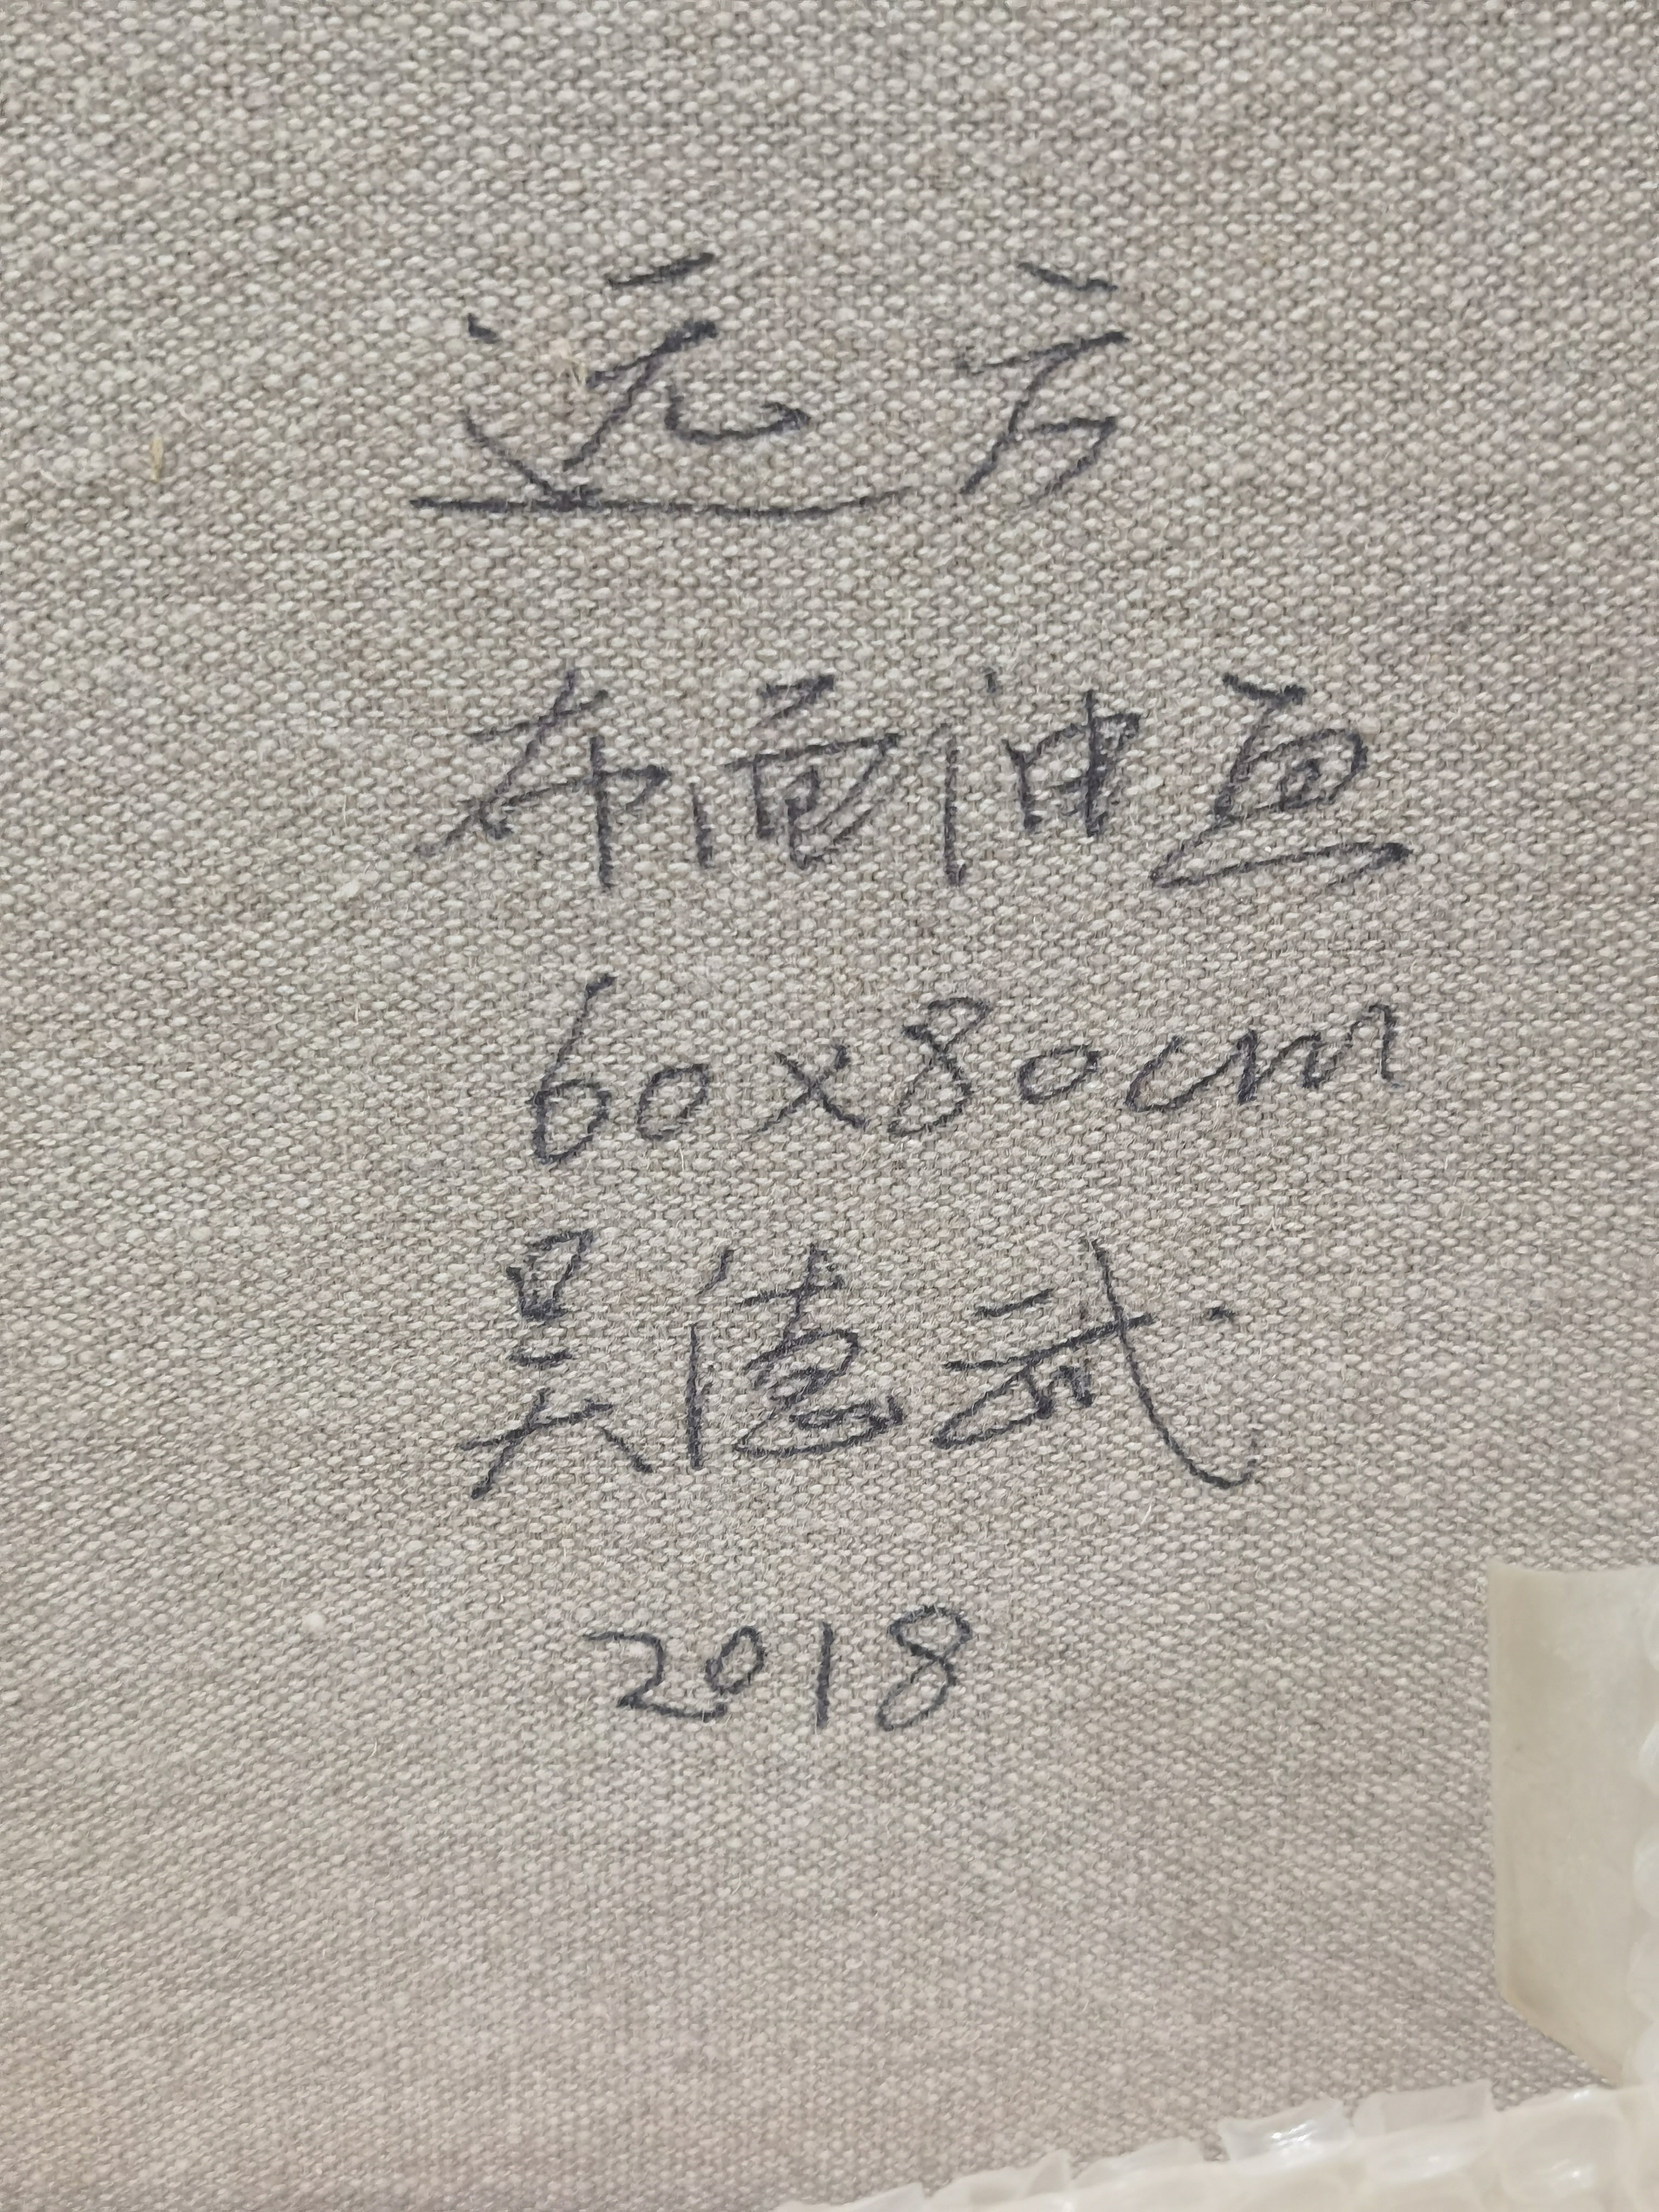 远方
布面油画
60x80cm
吴德武
2018